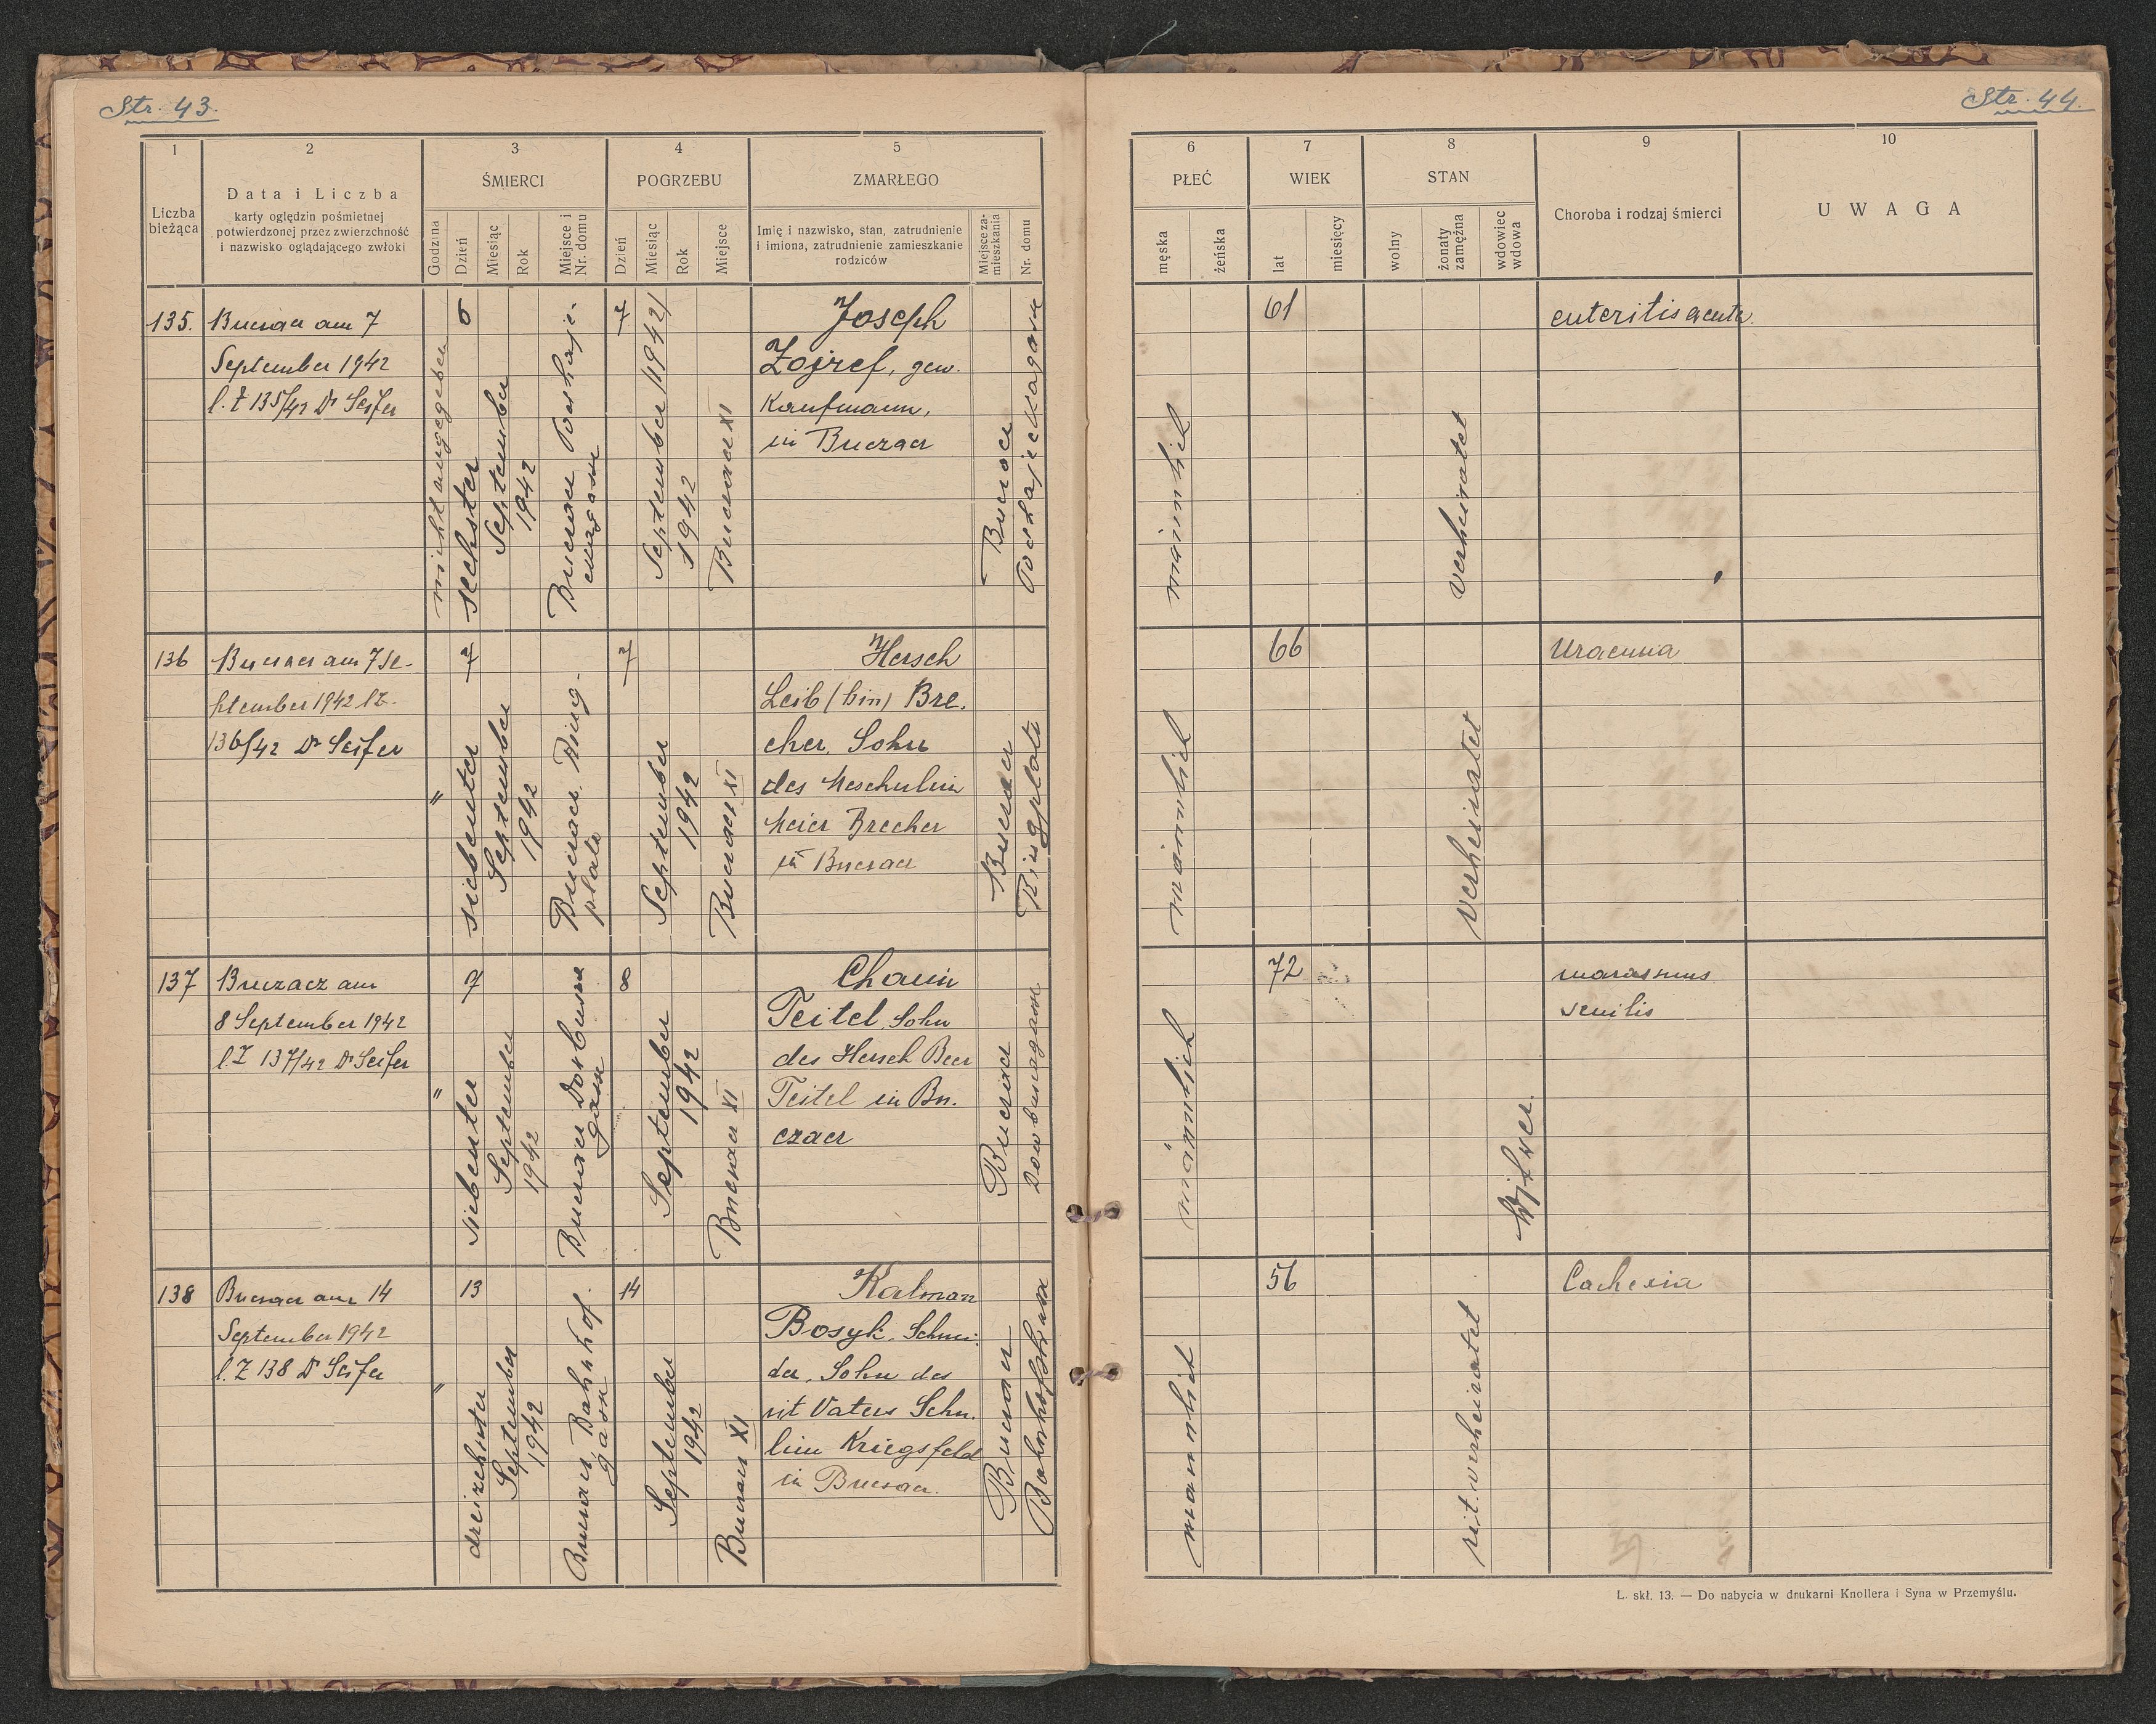 Str. 43.
1
2
3
4
5
Liczba bieżąca
Data i Liczba
karty oględzin pośmietnej
potwierdzonej przez zwierzchność
i nazwisko oglądającego zwłoki
ŚMIERCI
Godzina
Dzień
Miesiąc
Rok
Miejsce i Nr. domu
POGRZEBU
Dzień
Miesiąc
Rok
Miejsce
ZMARŁEGO
Imię i nazwisko, stan, zatrudnienie
i imiona, zatrudnienie zamieszkanie
rodziców
Miejsce za-
mieszkania
Nr. domu
135.
Buczacz am 7
September 1942
l. Z 135/42 Dr Seifer
nicht angegeben
6
sechster
September
1942
Buczacz
7
September
1942
Buczacz XI
Joseph
gew.
Kaufmann,
in Buczacz
Buczacz
136
Buczacz am 7 Se-
ptember 1942 l Z.
136/42 Dr Seifer
"
7
siebenter
September
1942
Buczacz Ring-
platz
7
September
1942
Buczacz XI
Hersch
Leib (bin) Bre.
cher, Sohn
des
Meier Brecher
in Buczacz
Buczacz
Ringplatz
137
Buczacz am
8 September 1942
l. Z 137/42 Dr Seifer
"
7
siebenter
September
1942
Buczacz
gasse
8
September
1942
Buczacz XI
Chaim
Teitel, Sohn
des Hersch Beer
Teitel in Bu.
czacz
Buczacz
138
Buczacz am 14
September 1942
l. Z 138 Dr Seifer
"
13
dreizehnter
September
1942
Buczacz Bahnhof.
gasse
14
September
1942
Buczacz XI
Kalman
Bosyk, Schnei.
der, Sohn des
rit Vaters Schu.
lim Kriegsfeld
in Buczacz.
Buczacz
Str. 44.
6
7
8
9
10
PŁEĆ
męska
żeńska
WIEK
lat
miesięcy
STAN
wolny
żonaty
zamężna
wdowiec
wdowa
Choroba i rodzaj śmierci
UWAGA
männlich
61
verheiratet
enteritis acuta.
männlich
66
verheiratet
Uraemia
männlich
72
Witwer.
marasmus
senilis
männlich
56
rit. verheiratet
Cachexia
L. skł. 13. — Do nabycia w drukarni Knollera i Syna w Przemyślu.